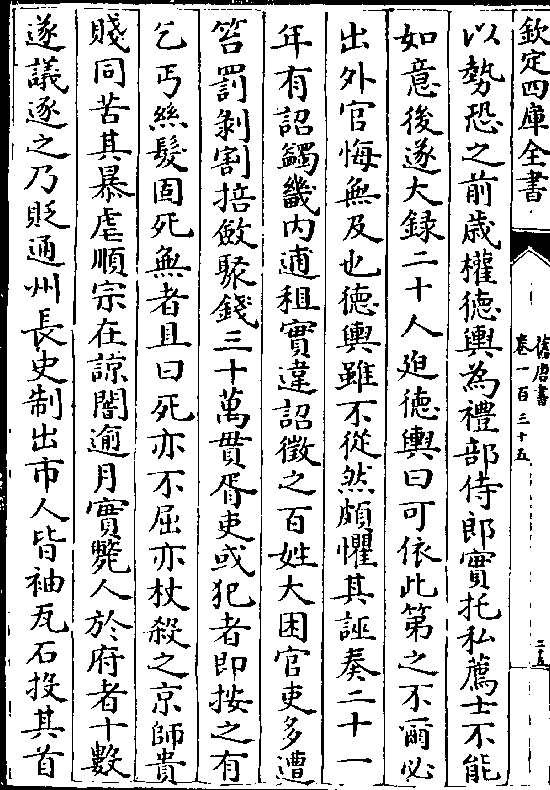 欽定四庫全書
舊唐書
卷一百三十五
以勢恐之前歲權德輿為禮部侍郎實托私薦士不能
如意後遂大録二十人迫德輿曰可依此第之不爾必
出外官悔無及也德輿雖不從然頗懼其誣奏二十一
年有詔蠲畿内逋租實違詔徵之百姓大困官吏多遭
笞罰剝割掊斂聚錢三十萬貫胥吏或犯者即按之有
乞丐絲髮固死無者且曰死亦不屈亦杖殺之京師貴
賤同苦其暴虐順宗在諒闇逾月實斃人於府者十數
遂議逐之乃貶通州長史制出市人皆袖瓦石投其首